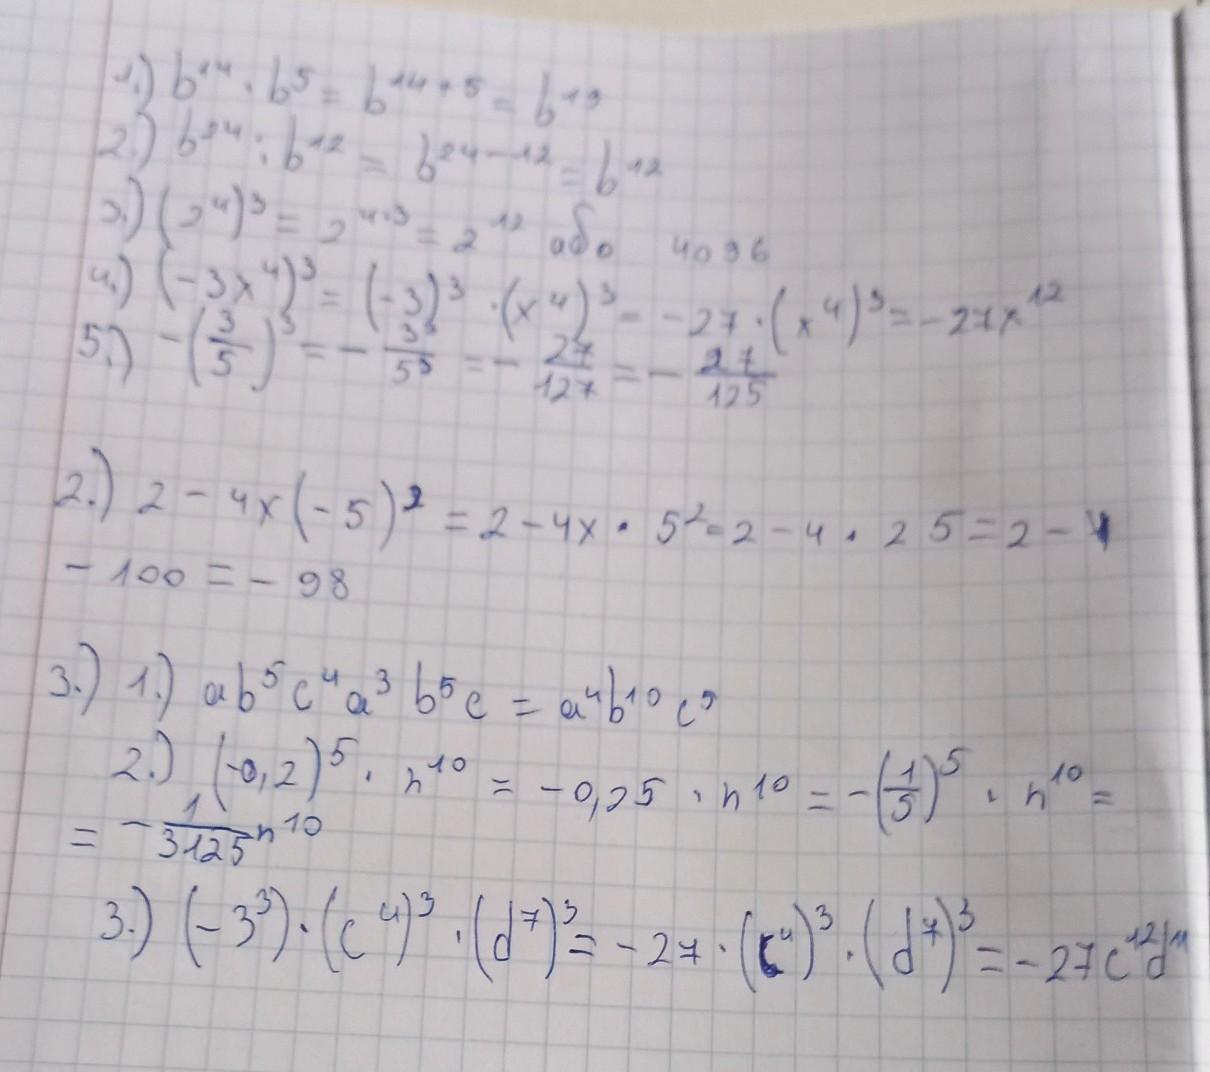 1.) b¹⁴ · b⁵ = b¹⁴⁺⁵ = b¹⁹
2.) b²⁴ : b¹² = b²⁴⁻¹² = b¹²
3.) (2⁴)³ = 2⁴·³ = 2¹² або 4096
4.) (-3x⁴)³ = (-3)³ · (x⁴)³ = -27 · (x⁴)³ = -27x¹²
5.) -(3/5)³ = - 3³/5³ = - 27/127 = - 27/125
2.) 2 - 4x(-5)² = 2 - 4x · 5² = 2 - 4 · 25 = 2 -
- 100 = - 98
3.) 1.) ab⁵c⁴a³b⁵c = a⁴b¹⁰c⁵
2.) (-0,2)⁵ · n¹⁰ = -0,25 · n¹⁰ = -(1/5)⁵ · n¹⁰ =
= - 1/3125 n¹⁰
3.) (-3³) · (c⁴)³ · (d⁷)³ = -27 · (c⁴)³ · (d⁷)³ = -27c¹²d